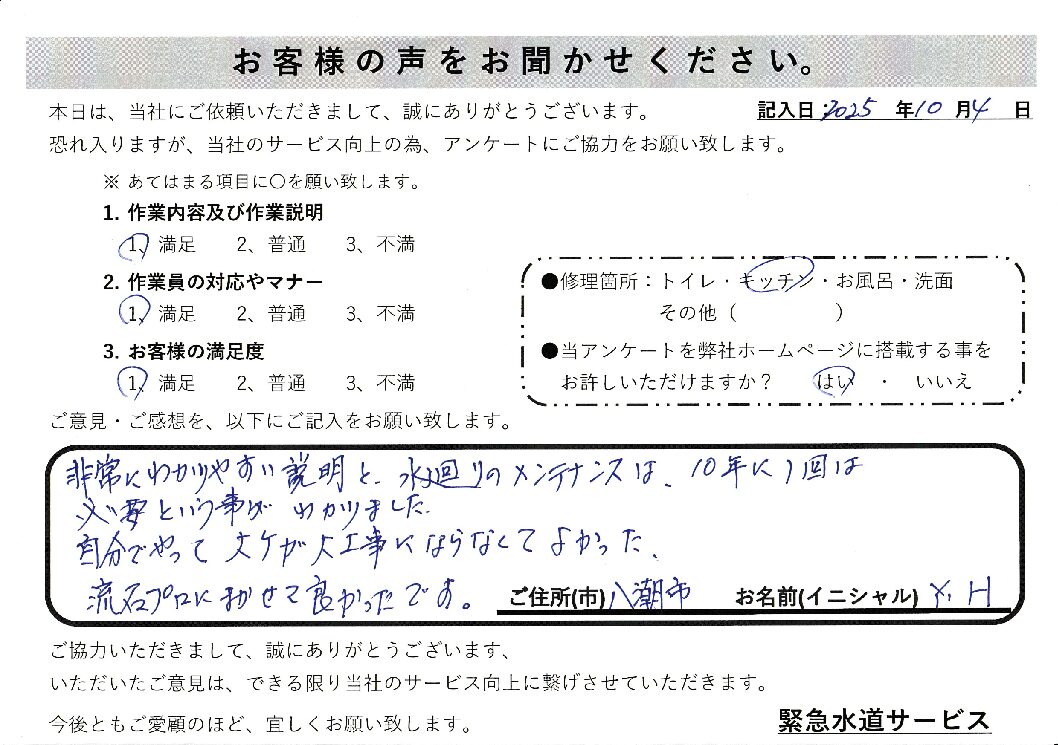 お客様の声をお聞かせください。
本日は、当社にご依頼いただきまして、誠にありがとうございます。 記入日:2025 年10 月4 日
恐れ入りますが、当社のサービス向上の為、アンケートにご協力をお願い致します。
※ あてはまる項目に〇を願い致します。
1. 作業内容及び作業説明
1、満足 2、普通 3、不満
2. 作業員の対応やマナー
1、満足 2、普通 3、不満
3. お客様の満足度
1、満足 2、普通 3、不満
●修理箇所：トイレ・キッチン・お風呂・洗面
その他（ ）
●当アンケートを弊社ホームページに搭載する事を
お許しいただけますか？ はい ・ いいえ
ご意見・ご感想を、以下にご記入をお願い致します。
非常にわかりやすい説明と、水廻りのメンテナンスは、10年に1回は
必要という事がわかりました。
自分でやって 大工事にならなくてよかった。
流石プロにまかせて良かったです。 ご住所(市) 八潮市 お名前(イニシャル) Y. H
ご協力いただきまして、誠にありがとうございます、
いただいたご意見は、できる限り当社のサービス向上に繋げさせていただきます。
今後ともご愛顧のほど、宜しくお願い致します。 緊急水道サービス